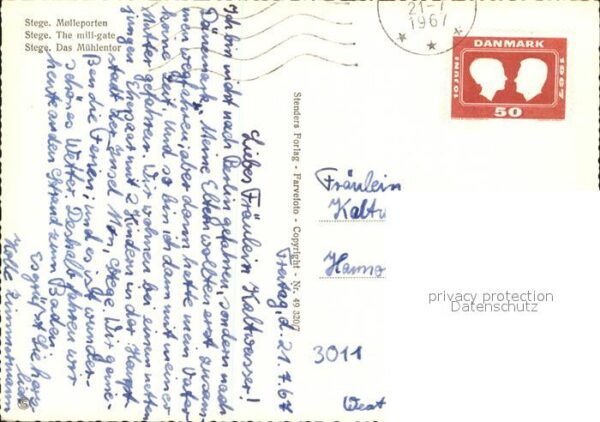 Stege. Mølleporten
Stege. The mill-gate
Stege. Das Mühlentor
21-7
1967
DANMARK
10 JUNI
1967
50
Stenders Forlag - Farvefoto - Copyright - Nr. 49 320/7
Freitag, d. 21. 7. 67
Liebes Fräulein Kaltwasser!
Ich bin nicht nach Berlin gefahren, sondern nach
Dänemark. Meine Eltern wollten erst zusam-
men wegfahren, aber dann hatte mein Vater
keine Zeit und so bin ich dann mit meiner
Mutter gefahren. Wir wohnen bei einem netten
jungen Ehepaar mit 2 Kindern in der Haupt-
stadt der Insel Mön, Stege. Wir genie-
ßen die Ferien, und es ist wunder-
schönes Wetter. Deshalb fuhren wir
heute an den Strand zum Baden
Es grüßt Sie herz
lich
Zimmermann
Fräulein
Kaltw
Hanno
3011
West
privacy protection
Datenschutz